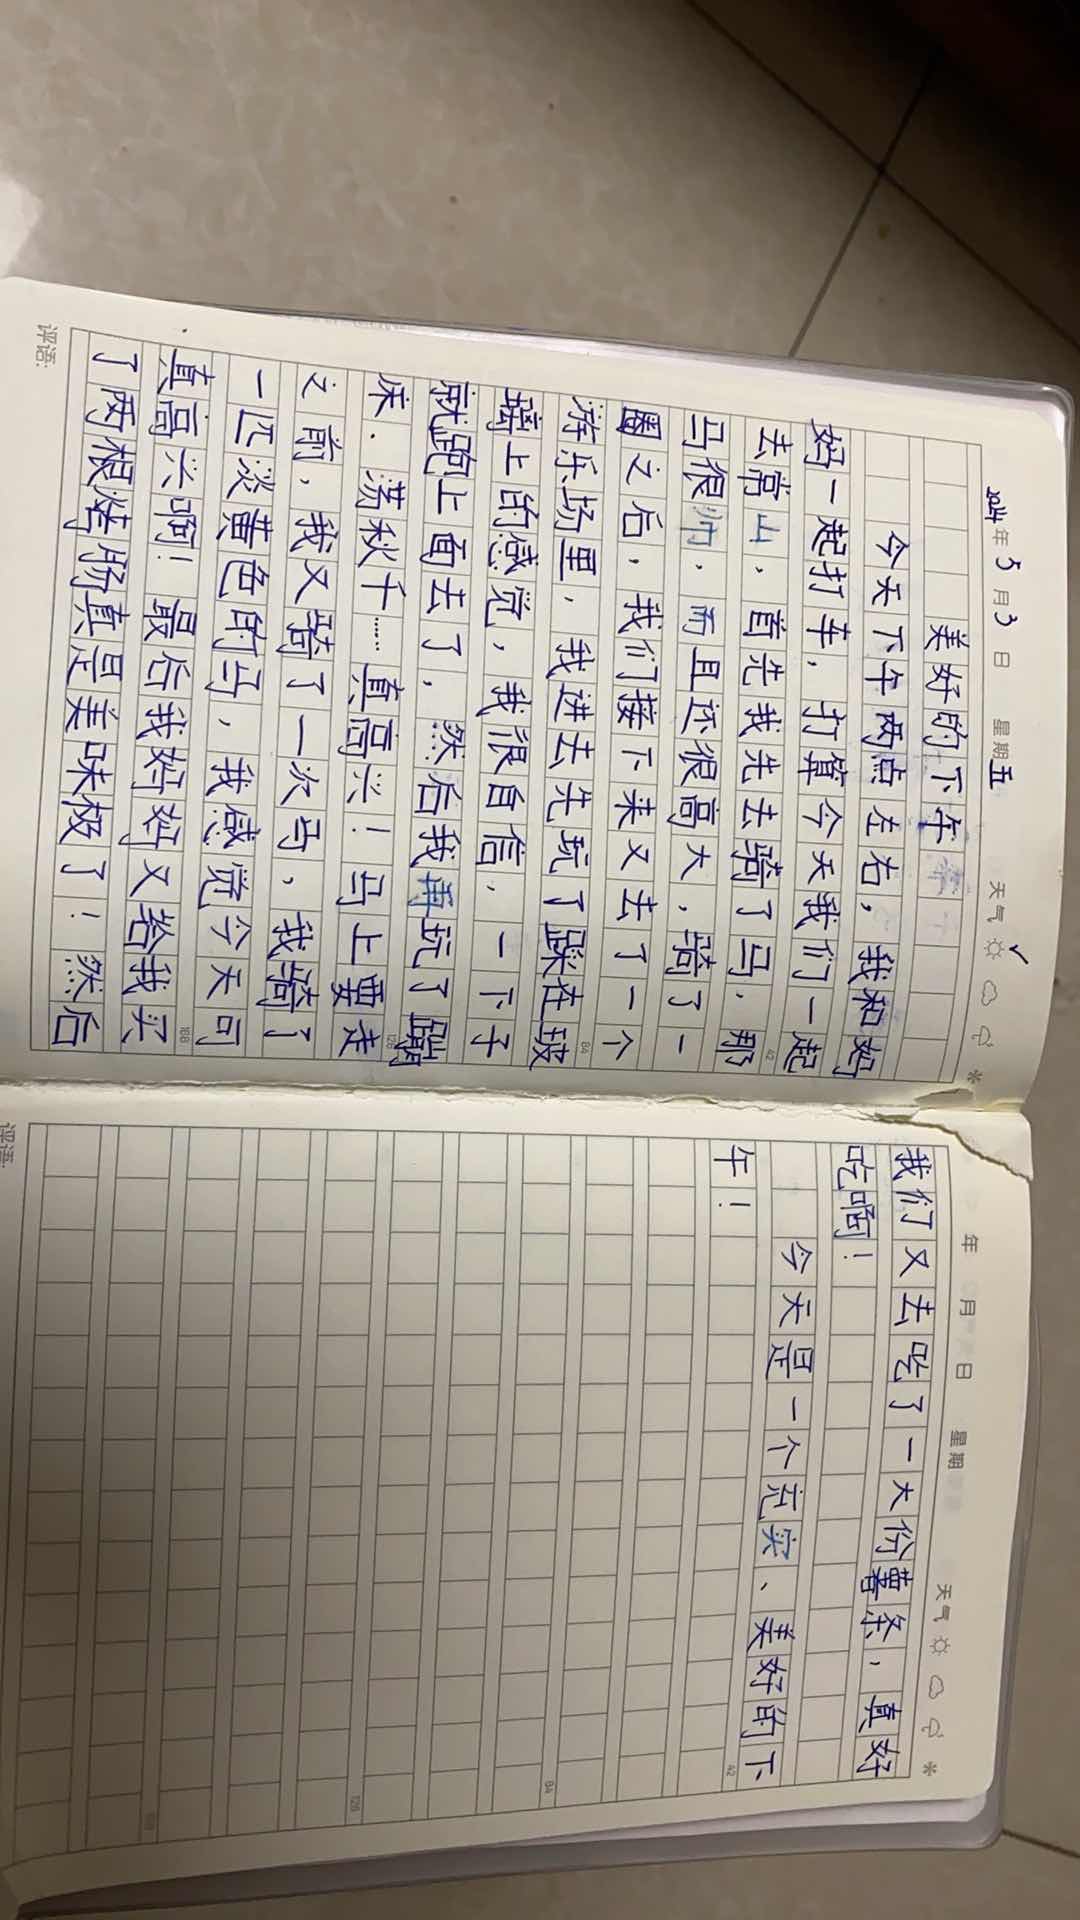 2024年5月3日 星期五 天气
美好的下午
今天下午两点左右，我和妈
妈一起打车，打算今天我们一起
去常山，首先我先去骑了马，那
马很帅，而且还很高大，骑了一
圈之后，我们接下来又去了一个
游乐场里，我进去先玩了踩在玻
璃上的感觉，我很自信，一下子
就跑上面去了，然后我再玩了蹦
床．荡秋千……真高兴！马上要走
之前，我又骑了一次马，我骑了
一匹淡黄色的马，我感觉今天可
真高兴啊！最后我妈妈又给我买
了两根烤肠真是美味极了！然后
评语:
年 月 日 星期 天气
我们又去吃了一大份薯条，真好
吃啊！
今天是一个充实、美好的下
午！
评语:
42
84
126
168
42
84
126